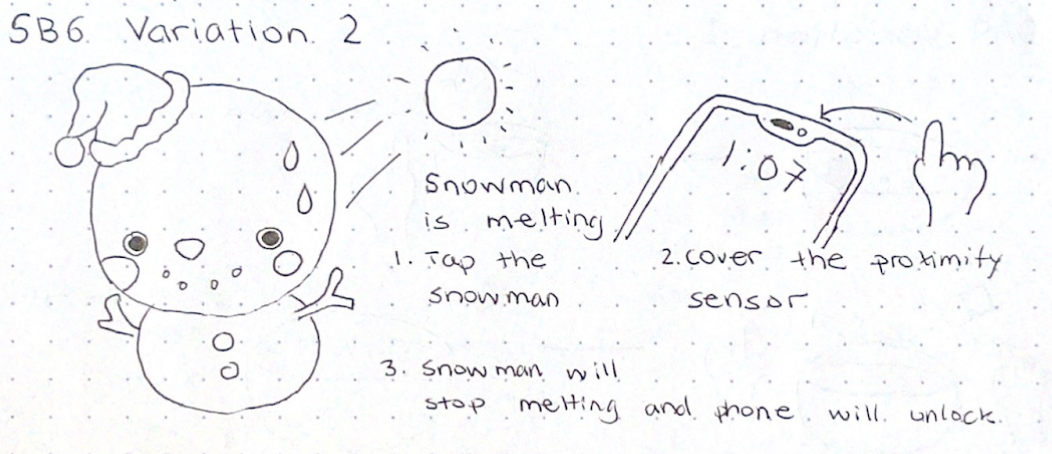 SB6. Variation. 2
Snowman
is melting
1. Tap the
snowman
1:07
2. cover the proximity
sensor
3. Snowman will
stop melting and phone will unlock.